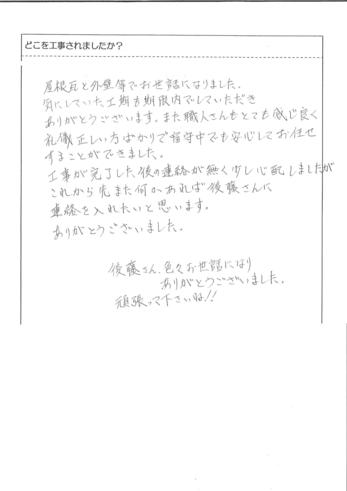 どこを工事されましたか?
屋根瓦と外壁等でお世話になりました。
気にしていた工期も期限内でしていただき
ありがとうございます。また職人さんもとても感じ良く
礼儀正しい方ばかりで留守中でも安心してお任せ
することができました。
工事が完了した後の連絡が無く少し心配しましたが
これから先また何かあれば後藤さんに
連絡を入れたいと思います。
ありがとうございました。
後藤さん、色々お世話になり
ありがとうございました。
頑張って下さいね!!